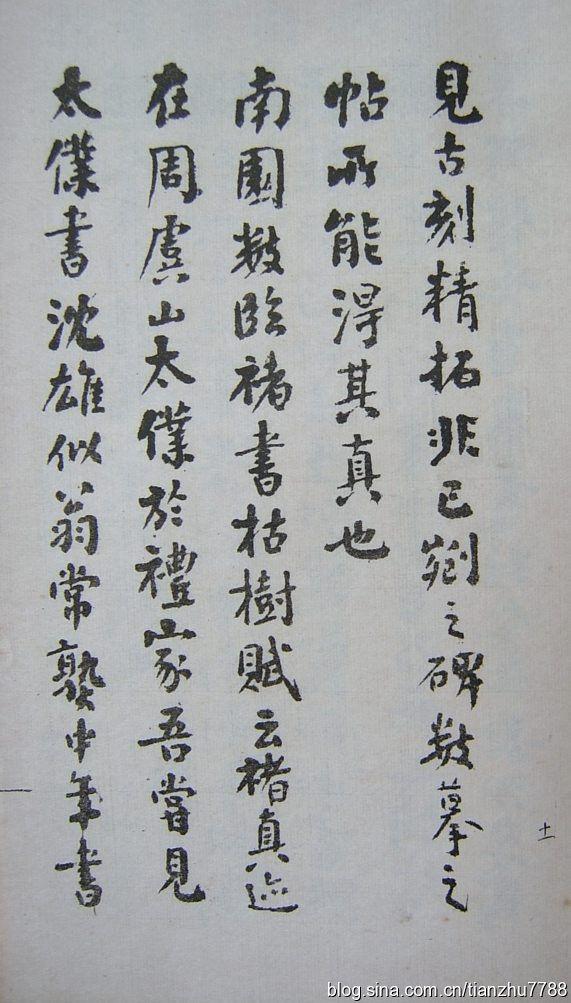 見古刻精拓非已剜之碑數摹之
帖所能得其真也
南園數臨褚書枯樹賦云褚真迹
在周虞山太僕於禮家吾當見
太僕書沈雄似翁常熟中年書
十一
blog.sina.com.cn/tianzhu7788